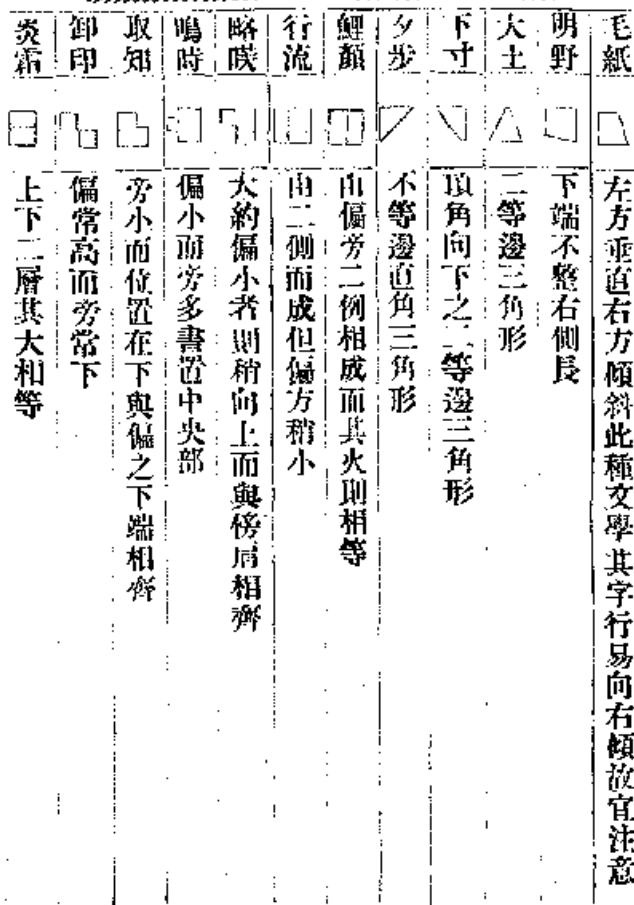 毛紙 左方垂直右方傾斜此種文學其字行易向右傾故宜注意
明野 下端不整右側長
大土 二等邊三角形
下寸 頂角向下之二等邊三角形
夕步 不等邊直角三角形
鯉顏 由偏旁二例相成而其火則相等
行流 由二側而成但偏方稍小
略咲 大約偏小者則稍向上而與傍肩相齊
鳴時 偏小而旁多書置中央部
取知 旁小而位置在下與偏之下端相齊
卸印 偏常高而旁常下
炎霜 上下二層其大相等